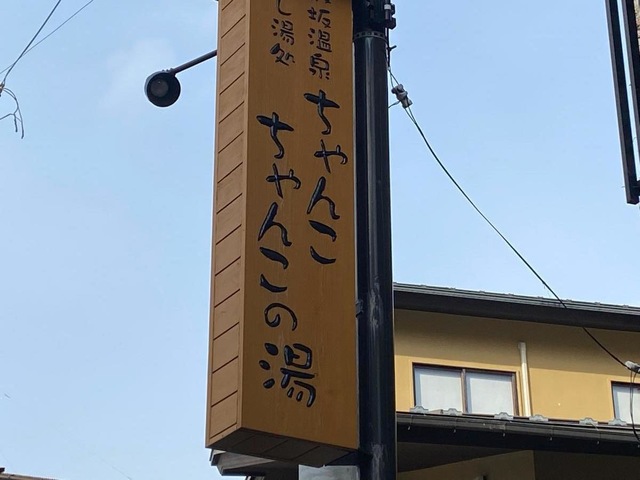 坂温泉 ちゃんこ
し湯処 ちゃんこの湯